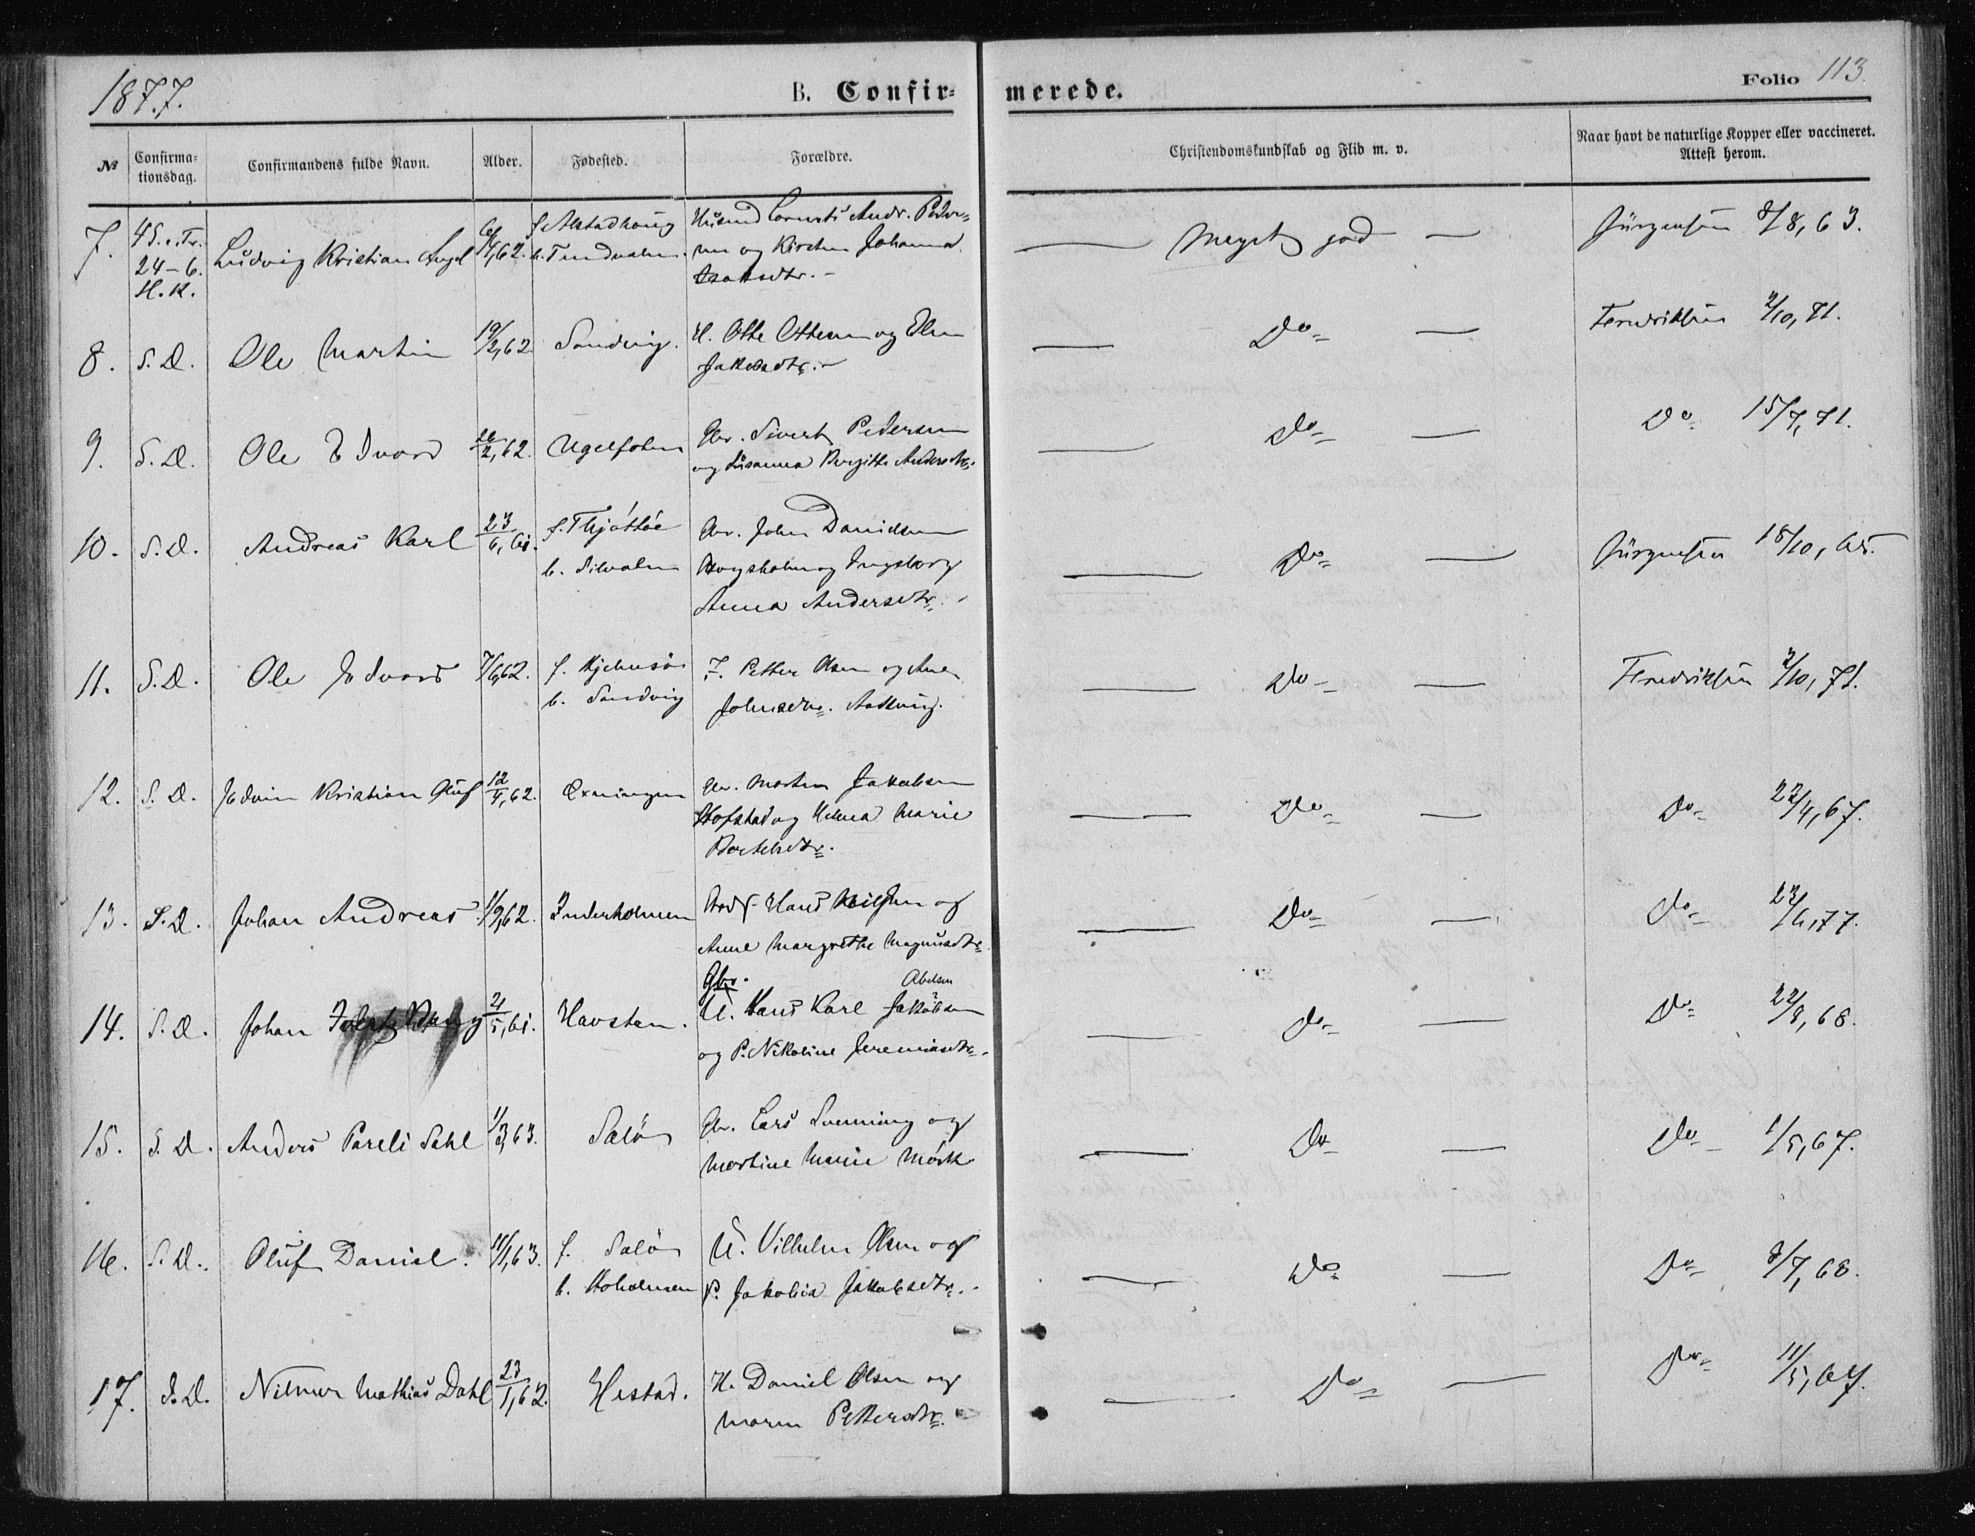 1877.
B. Confirmerede.
Folio 113.
№ Confirmationsdag. Confirmandens fulde Navn. Alder. Fødested. Forældre. Christendomskundskab og Flid m. v. Naar havt de naturlige Kopper eller vaccineret. Attest herom.
7. 4 S. e. Tr. Ludvig Kristian Angel 6/4,62. f. Alstadhoug Husmd Cornets Andr. Peder= — Meget god — Jürgensen 8/8, 63.
24-6. b. Tendvalen. sen og Kirsten Johanna
H. K. Isaksdtr. -
8. S. D. Ole Martin 19/2,62 Sandvig. H. Otte Ottesen og Elen — Do — Fredriksen 2/10, 71.
Jakobsdtr. -
9. S. D. Ole Edvard 26/2,62. Ugelfolen Gbr. Sivert Pedersen — Do — Do 15/7, 71.
og Susanna Birgitte Andersdtr.
10. S. D. Andreas Karl 23/6,61. f. Thjøttøe Gbr. John Danielsen — Do — Jürgensen 18/10, 65.
b. Silvalen og Ingeborg
Anna Andersdtr. -
11. S. D. Ole Edvard 7/6,62. f. Hjelmsö F. Petter Olsen og Ane — Do — Fredriksen 2/10, 71.
b. Sandvig Johnsdtr.
12. S. D. Edvin Kristian Oluf 12/4,62. Gbr. Morten Jakobsen — Do — Do 22/4, 67.
Hofstad og Helena Marie
Bertelsdtr.
13. S. D. Johan Andreas 1/9,62. Inderholmen Hans Nilsen og — Do — Do 23/6,77.
Anne Margrethe Magnusdtr.
Gbr. Abelsen
14. S. D. Johan 2/5,61. Havsten. U. Hans Karl Jakobsen — Do — Do 22/8, 68.
og P. Nikoline Jeremiasdtr.
15. S. D. Anders Pareli Dahl 1/3,63. Salö Gbr. Lars Svenning og — Do — Do 1/5, 67.
Martine Marie Mörk
16. S. D. Oluf Daniel. 11/1,63. f. Salö U. Vilhelm Olsen og — Do — Do 8/7, 68.
b. Hoholmen P. Jakobia Jakobsdtr.
17. S. D. Nilmer Mathias Dahl 23/1,62. Hestad. H. Daniel Olsen og — Do — Do 11/5, 67.
Maren Pettersdtr.